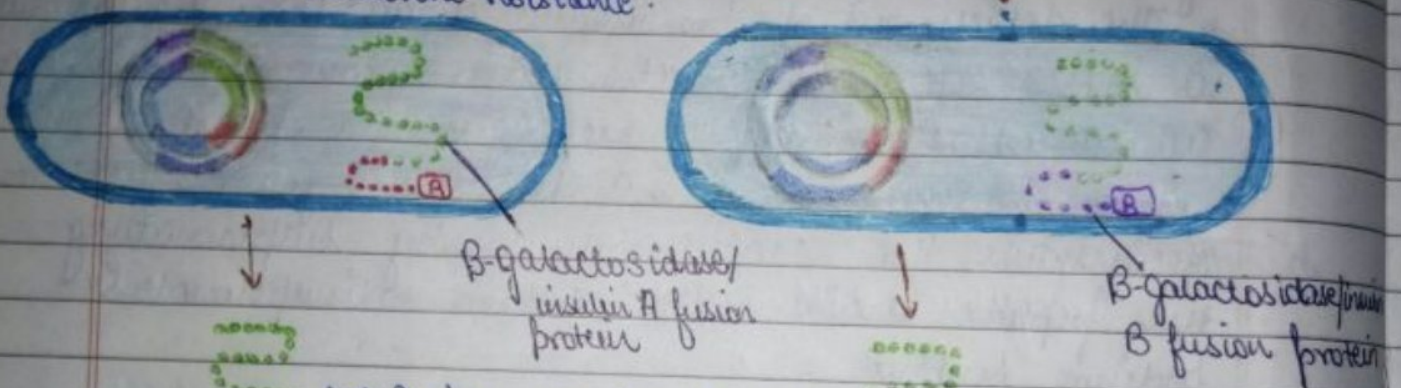 resistance.
A
B
B-galactosidase/
insulin A fusion
protein
B-galactosidase/insulin
B fusion protein